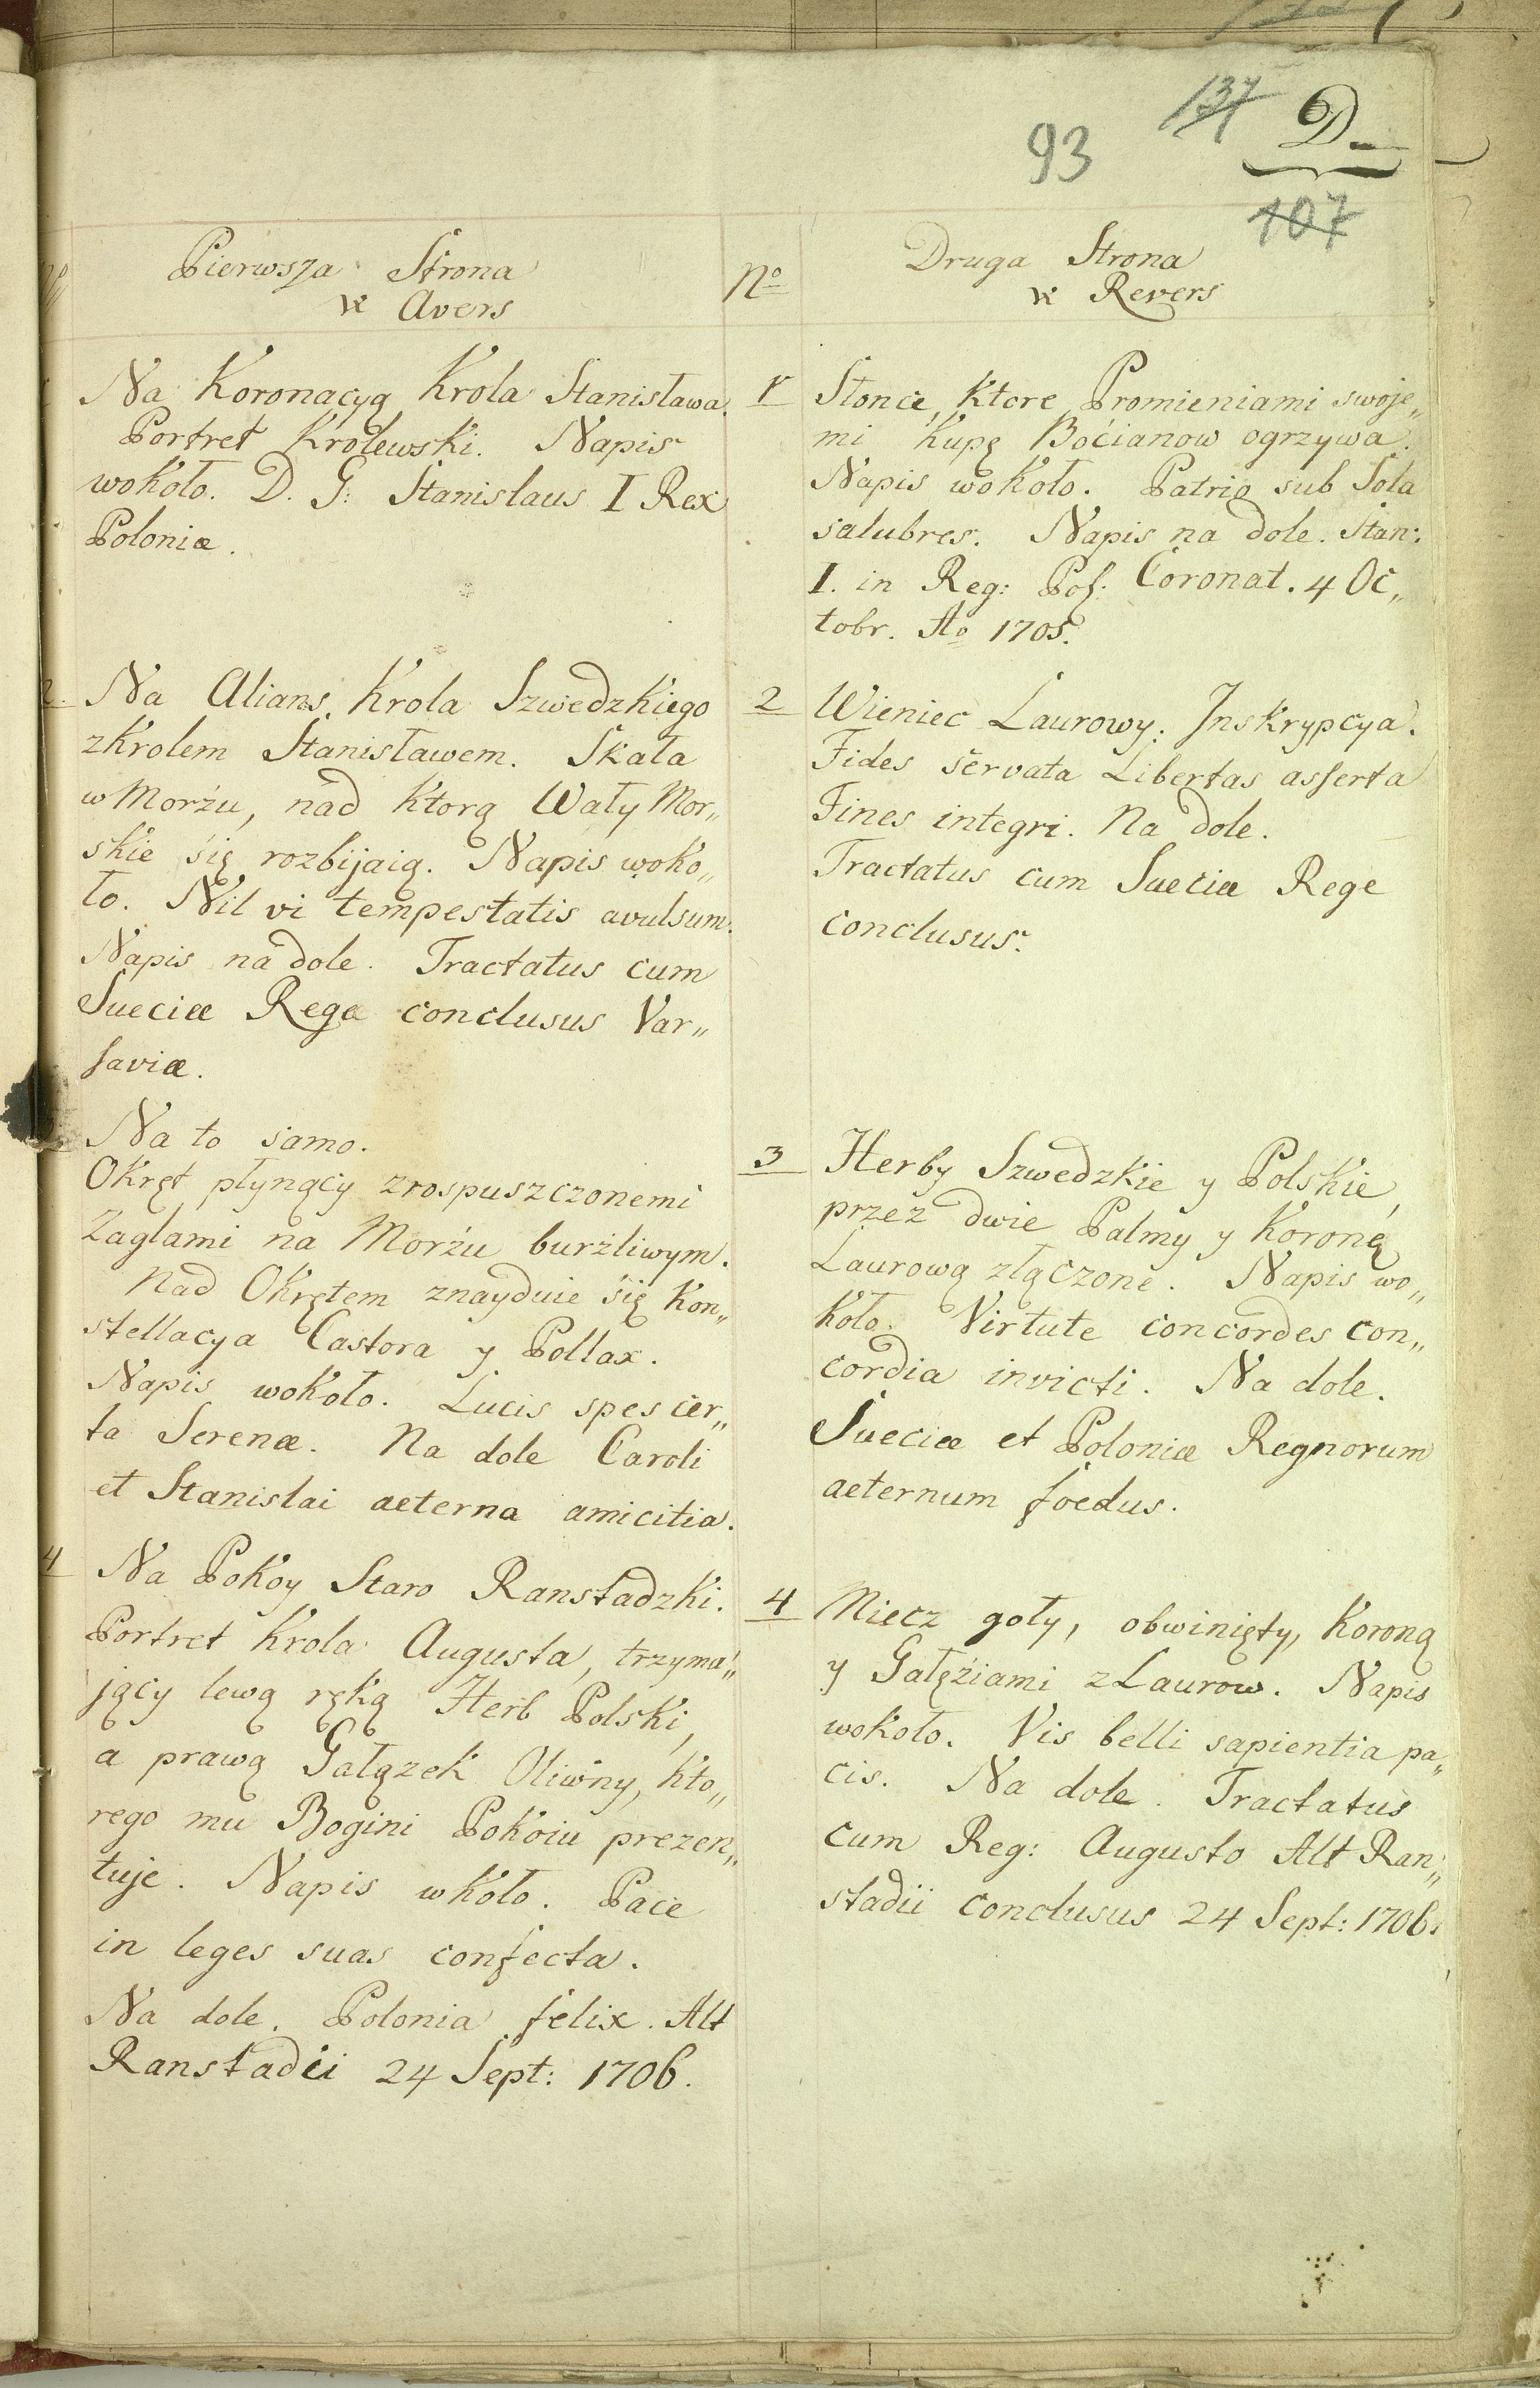 137 D.
93
107
Nº
Pierwsza Strona
v: Avers
Na Koronacyą Krola Stanisława.
Portret Krolewski. Napis
wokoło. D. G: Stanislaus I Rex
Poloniæ.
2. Na Alians Krola Szwedzkiego
z Krolem Stanisławem. Skała
w Morżu, nad ktorą Wały Mor„
skie się rozbijaią. Napis woko„
ło. Nil vi tempestatis avulsum.
Napis na dole. Tractatus cum
Sueciæ Rege conclusus Var„
saviæ.
Na to samo.
Okręt płynący zrospuszczonemi
Zaglami na Morżu burżliwym.
Nad Okrętem znayduie się Kon„
stellacya Castora y Pollax.
Napis wokoło. Lucis spes cer„
ta Serenæ. Na dole Caroli
et Stanislai aeterna amicitia.
4 Na Pokoy Staro Ranstadzki.
Portret Krola Augusta, trzyma„
jący lewą ręką Herb Polski,
a prawą Gałązek Oliwny, kto„
rego mu Bogini Pokoiu prezen„
tuje. Napis wkoło. Pace
in leges suas confecta.
Na dole. Polonia felix. Alt
Ranstadii 24 Sept: 1706.
Nº
Druga Strona
v: Revers
1 Słonce, ktore Promieniami swoje„
mi Kupę Boćianow ogrzywa.
Napis wokoło. Patrio sub Sola
salubres. Napis na dole. Stan:
I. in Reg: Pol: Coronat. 4 Oc„
tobr. Aº 1705.
2 Wieniec Laurowy. Inskrypcya.
Fides servata Libertas asserta
Fines integri. Na dole.
Tractatus cum Sueciæ Rege
conclusus.
3 Herby Szwedzkie y Polskie,
przez dwie Palmy y Koronę
Laurową złączone. Napis wo„
koło. Virtute concordes con„
cordia invicti. Na dole.
Sueciæ et Poloniæ Regnorum
aeternum foedus.
4 Miecz goły, obwinięty, Koroną
y Gałęźiami z Laurow. Napis
wokoło. Vis belli sapientia pa„
cis. Na dole. Tractatus
cum Reg: Augusto Alt Ran„
stadii conclusus 24 Sept: 1706.